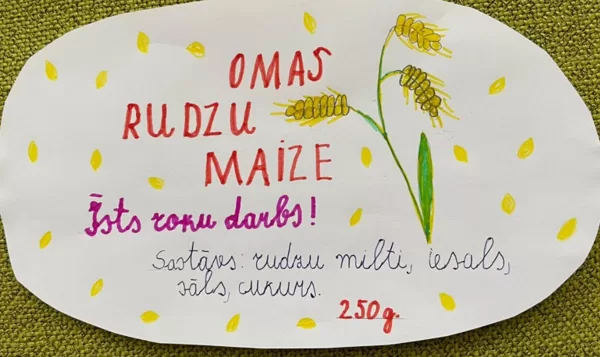 OMAS
RUDZU
MAIZE
Īsts roku darbs!
Sastāvs: rudzu milti, iesals,
sāls, cukurs.
250g.